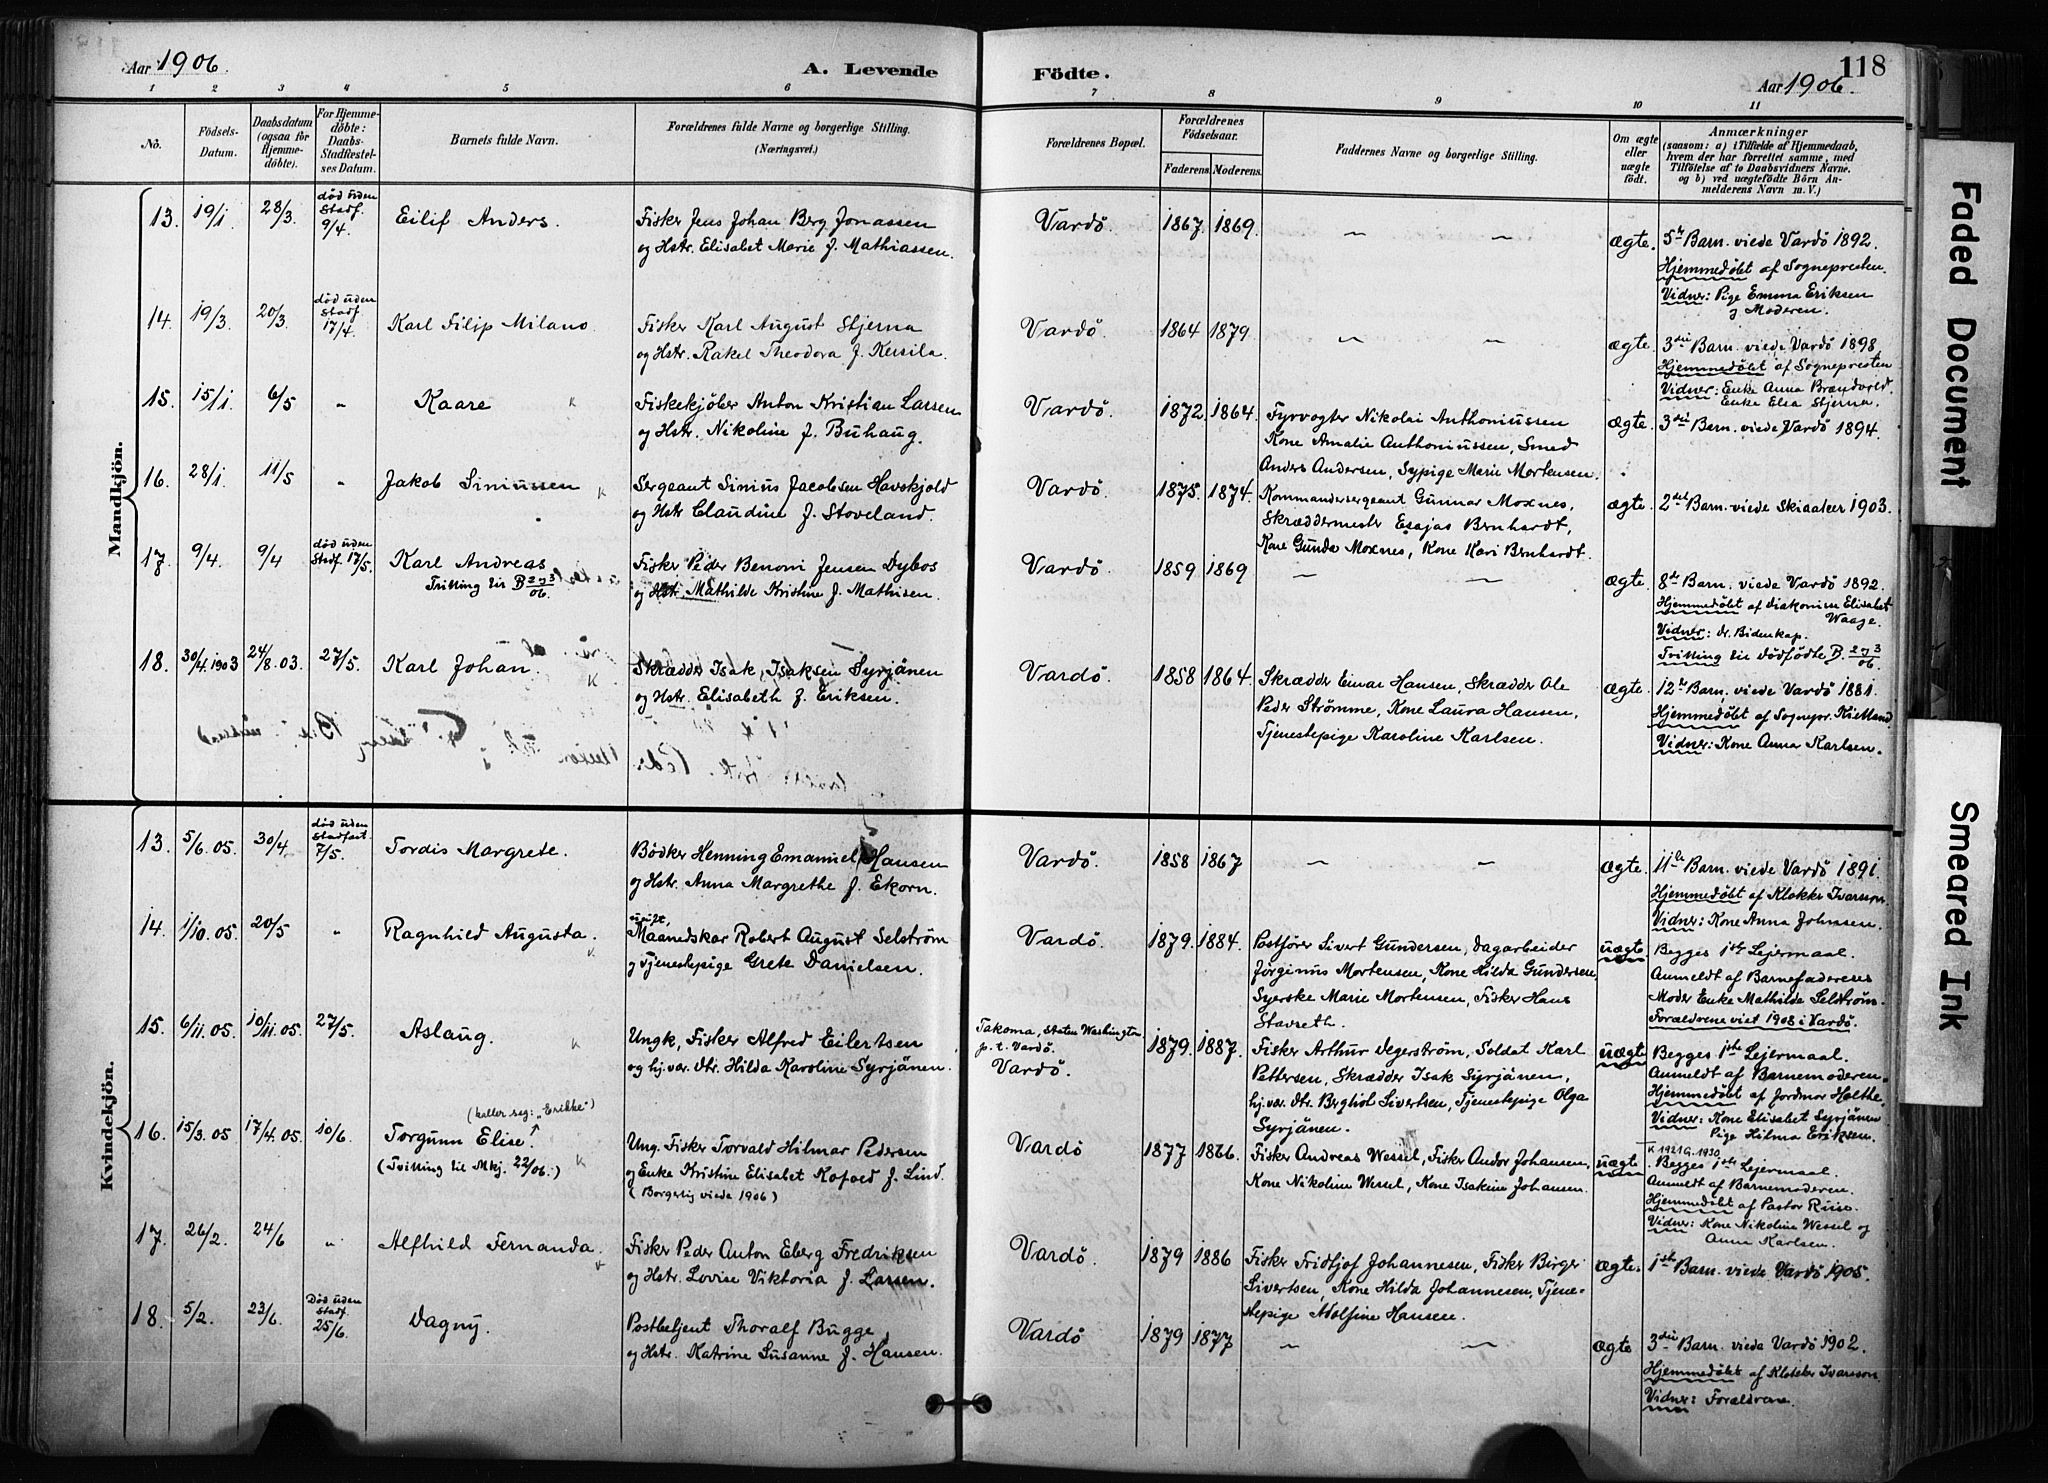 Aar 1906.
A. Levende Födte.
118
Aar 1906.
1 2 3 4 5 6 7 8 9 10 11
No.
Födsels-Datum.
Daabsdatum (ogsaa for Hjemmedöbte).
For Hjemmedöbte: Daabs-Stadfæstelses Datum.
Barnets fulde Navn.
Forældrenes fulde Navne og borgerlige Stilling.
(Næringsvei.)
Forældrenes Bopæl.
Forældrenes Födselsaar.
Faderens. Moderens.
Faddernes Navne og borgerlige Stilling.
Om ægte eller uægte födt.
Anmærkninger
(saasom: a) i Tilfælde af Hjemmedaab, hvem der har forrettet samme, med Tilföielse af to Daabsvidners Navne. og b) ved uægtefödte Börn Anmelderens Navn m. V.)
Mandkjön.
13. 19/1 28/3 död uden Stadf. 9/4. Eilif Anders. Fisker Jens Johan Berg Jonassen
og Hstr. Elisabet Marie f. Mathiassen.
Vardö. 1867. 1869. ægte. 5te Barn. viede Vardö 1892.
Hjemmedöbt af Sognepresten.
Vidner: Pige Emma Eriksen
og Moderen.
14. 19/3. 20/3. död uden Stadf 17/4. Karl Filip Milano. Fisker Karl August Stjerna
og Hstr. Rakel Theodora f. Kersila.
Vardö 1864 1879 ægte. 3die Barn. viede Vardö 1898.
Hjemmedöbt af Sognepresten
Vidner: Enke Anna Brændvold.
Enke Elsa Stjerna.
15. 15/1. 6/5 " Kaare Fiskekjöber Anton Kristian Larsen
og Hstr. Nikoline f. Buhaug.
Vardö. 1872. 1864. Fyrvogter Nikolai Anthoniussen
Kone Amalie Anthoniussen, Smed
Anders Andersen, Sypige Marie Mortensen.
ægte. 3die Barn. viede Vardö 1894.
16. 28/1. 11/5 " Jakob Siniussen Sergeant Sinius Jacobsen Havskjold
og Hstr Claudine f. Stoveland.
Vardö. 1875. 1874. Kommandersergeant Gunnar Moxnes,
Skræddermester Esajas Bernhardt,
Kone Gunda Moxnes, Kone Kari Bernhardt.
ægte. 2det Barn. viede Skiaaker 1903.
17. 9/4. 9/4 död uden Stadf. 17/5. Karl Andreas
Trilling til B 2 og 3/06.
Fisker Peder Benoni Jensen Dybos
og Hstr. Mathilde Kristine f. Mathisen.
Vardö. 1859 1869 ægte. 8de Barn. viede Vardö 1892.
Hjemmedöbt af Diakonisse Elisabet
Waage.
Vidner: dr. Bidenkap.
Trilling til dödfödte B. 2 og 3/06.
18. 30/4. 1903 24/8. 03. 27/5. Karl Johan. Skrædder Isak Isaksen Syrjänen
og Hstr. Elisabeth f. Eriksen.
Vardö 1858 1864. Skrædder Einar Hansen, Skrædder Ole
Peder Strömme, Kone Laura Hansen,
Tjenestepige Karoline Karlsen.
ægte. 12te Barn. viede Vardö 1881.
Hjemmedöbt af Sognepr. Kielland
Vidner: Kone Anna Karlsen.
Kvindekjön.
13. 5/6. 05. 30/4. död uden Stadfæst. 7/5. Tordis Margrete. Bödker Henning Emanuel Hansen
og Hstr. Anna Margrethe f. Ekorn.
Vardö. 1858 1867 ægte. 11te Barn. viede Vardö 1891.
Hjemmedöbt af Klokker
Vidner: Kone Anna Johnsen.
14. 1/10. 05. 20/5 " Ragnhild Augusta. ugift,
Maanedskar Robert August Selström
og Tjenestepige Grete Danielsen.
Vardö. 1879. 1884. Postförer Sivert Gundersen, Dagarbeider
Jörginus Mortensen, Kone Hilda Gundersen,
Syerske Marie Mortensen, Fisker Hans
Stavseth.
uægte Begges 1ste Lejermaal.
Anmeldt af Barnefaderens
Moder Enke Mathilde Selström.
Forældrene viet 1908 i Vardö.
15. 6/11. 05. 10/11. 05. 27/5. Aslaug. Ungk. Fisker Alfred Eilertsen
og hj.vær. Dtr. Hilda Karoline Syrjänen.
Takoma, Staten Washington
p. t. Vardö.
Vardö.
1879. 1887. Fisker Arthur Segerström, Soldat Karl
Pettersen, Skrædder Isak Syrjänen,
hj.vær. Dtr. Berghol Sivertsen, Tjenestepige Olga
Syrjänen.
uægte Begges 1ste Lejermaal.
Anmeldt af Barnemoderen.
Hjemmedöbt af Jordmor Holthe
Vidner: Kone Elisabet Syrjänen
Pige Hilma Eriksen.
16. 15/3. 05 17/4. 05. 10/6. (kaller seg: "Erikke")
Torgunn Elise.
(Tvilling til Mkj. 22/06.)
Ung. Fisker Torvald Hilmar Pedersen
og Enke Kristine Elisabet Kofoed f. Lind.
(Borgerlig viede 1906)
Vardö 1877 1866. Fisker Andreas Wessel, Fisker Andor Johansen,
Kone Nikoline Wessel, Kone Isakine Johansen.
uægte K 1921 G. 1930.
Begges 1ste Lejermaal.
Anmeldt af Barnemoderen.
Hjemmedöbt af Pastor Riise.
Vidner: Kone Nikoline Wessel og
Anna Karlsen.
17. 26/2. 24/6 " Alfhild Fernanda. Fisker Peder Anton Eberg Fredriksen
og Hstr. Lovise Viktoria f. Larsen.
Vardö 1879 1886 Fisker Fridtjof Johannesen, Fisker Birger
Sivertsen, Kone Hilda Johannesen, Tjene-
stepige Adolfine Hansen.
ægte. 1ste Barn. viede Vardö 1905.
18. 5/2. 23/6. Död uden Stadf. 25/6. Dagny. Postbetjent Thoralf Bugge
og Hstr. Katrine Susanne f. Hansen.
Vardö 1879 1877 ægte 3die Barn. viede Vardö 1902.
Hjemmedöbt af Klokker Ivarsson.
Vidner: Forældrene.
Faded Document
Smeared Ink